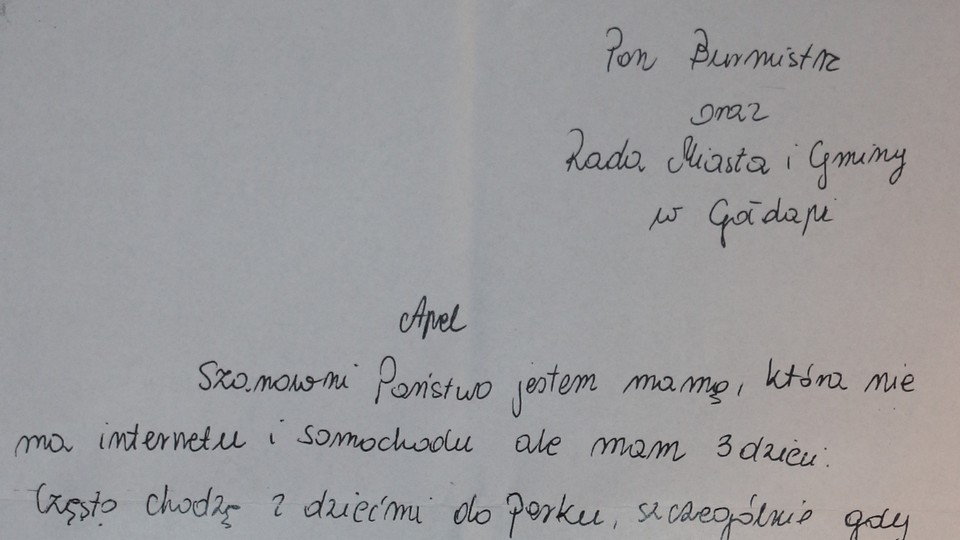 Pan Burmistrz
oraz
Rada Miasta i Gminy
w Gołdapi
Apel
Szanowni Państwo jestem mamą, która nie
ma internetu i samochodu ale mam 3 dzieci.
Często chodzę z dziećmi do Parku, szczególnie gdy